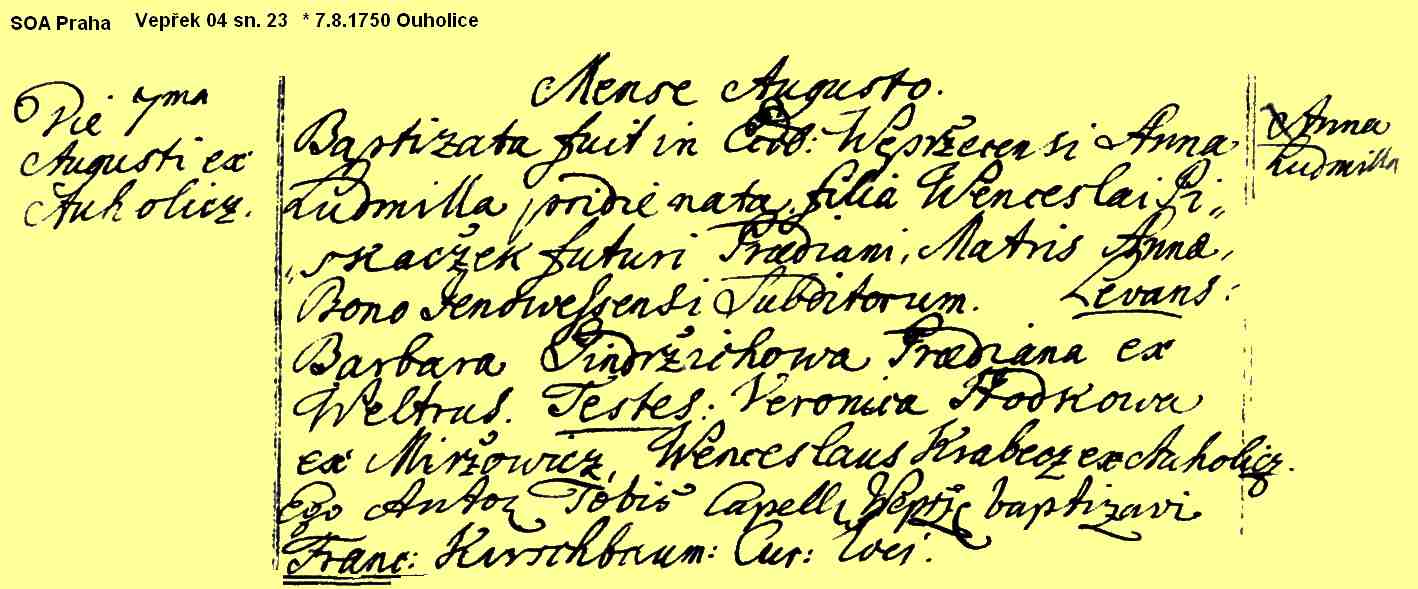 SOA Praha Vepřek 04 sn. 23 * 7.8.1750 Ouholice
Mense Augusto.
Die 7ma
Augusti ex
Auholicz.
Baptizata fuit in Eccl: Weprzecensi Anna
Ludmilla pridie nata, filia Wenceslai Pi„
„skaczek futuri Prædiani, Matris Annæ,
Bono Jenowessensi Subditorum. Levans:
Barbara Jindrzichowa Prædiana ex
Weltrus. Testes: Veronica Hodkowa
ex Mirzowicz, Wenceslaus Krabecz ex Auholicz.
Ego Anton Tobis Capell Weprz baptizavi
Franc: Kirschbaum: Cur: loci.
Anna
Ludmilla